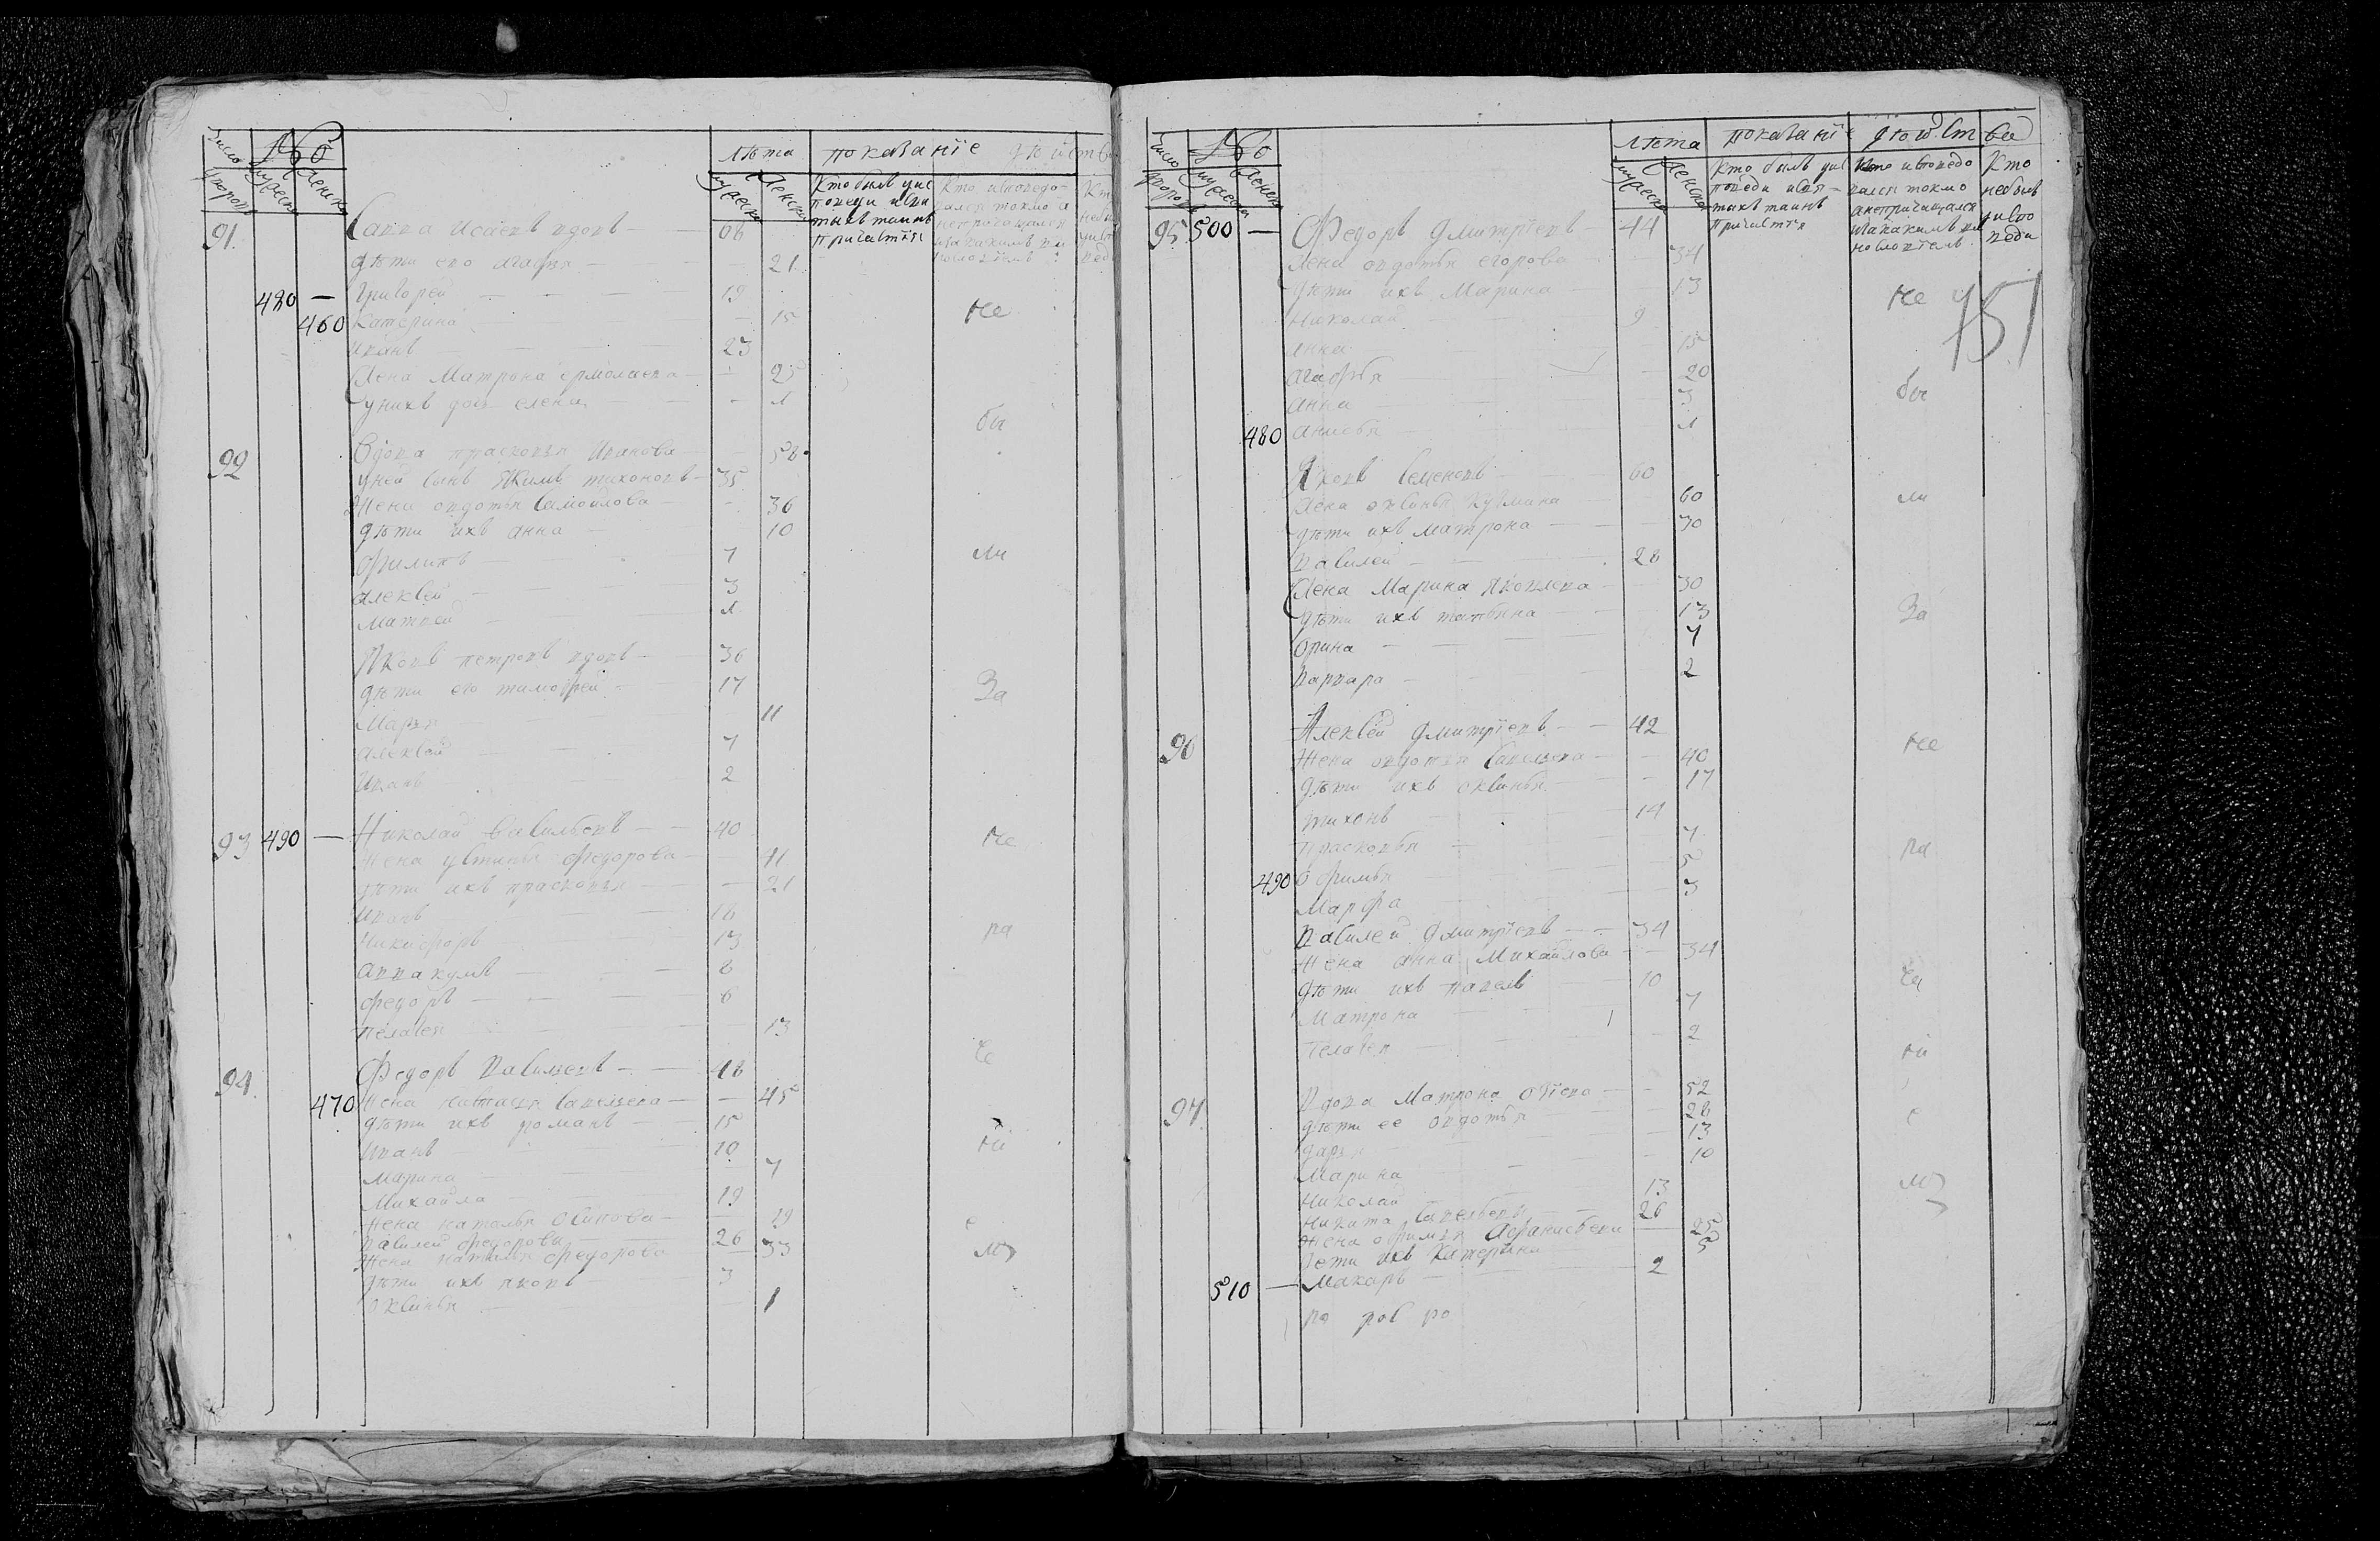 №
лѣта показанїе дѣйств
число дворовъ мужеска женска
мужеска женска
Кто былъ у ис
поведи и свя
тыхъ таинъ
причастїя
Кто исповедо-
вался токмо а
не причащался
и за какимъ ви
нословїемъ
91 Савва Исаевъ вдовъ 68
дѣти его Агафья 21
480 — Григорей 19
460 Катерина 15
Иванъ 23
Жена Матрона Ермолаева 25
у нихъ дочь Елена 1
92 Вдова Прасковья Иванова 58
у ней сынъ Якимъ Тихоновъ 35
Жена Овдотья Самойлова 36
дѣти ихъ Анна 10
Филипъ 7
Алексей 3
Матвей 1
Яковъ Петровъ вдовъ 36
дѣти его Тимофей 17
Марья 11
Алексей 7
Иванъ 2
93 490 — Николай Васильевъ 40
Жена Устинья Федорова 41
дѣти ихъ Прасковья 21
Иванъ 18
Никифоръ 13
Аввакумъ 8
Федоръ 6
Пелагея 13
94 Федоръ Васильевъ 48
470 Жена Настасья Савельева 45
дѣти ихъ Романъ 15
Иванъ 10
Марина 7
Михайла 19
Жена Наталья Осипова 19
Василей Федоровъ 26
Жена Наталья Федорова 33
дѣти ихъ Яковъ 3
Оксинья 1
не
бы
ли
за
не
ра
че
нї
е
мъ
№
лѣта показанїе дѣйства
число дворовъ мужеска женска
мужеска женска
Кто былъ у ис
поведи и свя-
тыхъ таинъ
причастїя
Кто исповедо
вался токмо
а не причащался
и за какимъ ви
нословїемъ
Кто
не былъ
у испо
веди
151
95 500 — Федоръ Дмитрїевъ 44
Жена Овдотья Егорова 34
дѣти ихъ Марина 13
Николай 9
Анна 15
Агафья 20
Анна 3
480 Анисья 1
Яковъ Семеновъ 60
Жена Оксинья Кузмина 60
дѣти ихъ Матрона 30
Василей 28
Жена Марина Яковлева 30
дѣти ихъ Татьяна 13
Орина 7
Варвара 2
96 Алексей Дмитрїевъ 42
Жена Овдотья Савельева 40
дѣти ихъ Оксинья 17
Тихонъ 14
Прасковья 7
490 Офимья 5
Марфа 3
Василей Дмитрїевъ 34
Жена Анна Михайлова 34
дѣти ихъ Павелъ 10
Матрона 7
Пелагея 2
97 Вдова Матрона 52
дѣти ее Овдотья 28
Дарья 13
Марина 10
Николай 13
Никита Савельевъ 26
Жена Офимья Афанасьева 25
дети ихъ Катерина 5
510 — Макаръ 2
не
бы
ли
за
не
ра
че
нї
е
мъ